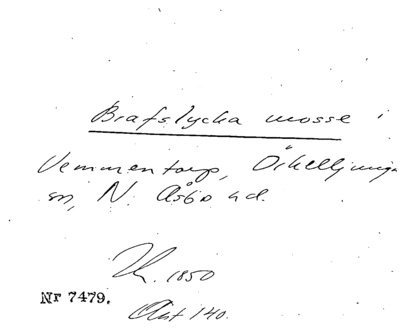 Brafslycka mosse i
Vemmentorp, Örkelljunga
sn, N. Åsbo hd.
1850
Nr 7479.
140.